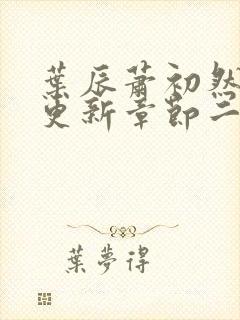 葉辰蕭初然
更新章節二
葉夢得